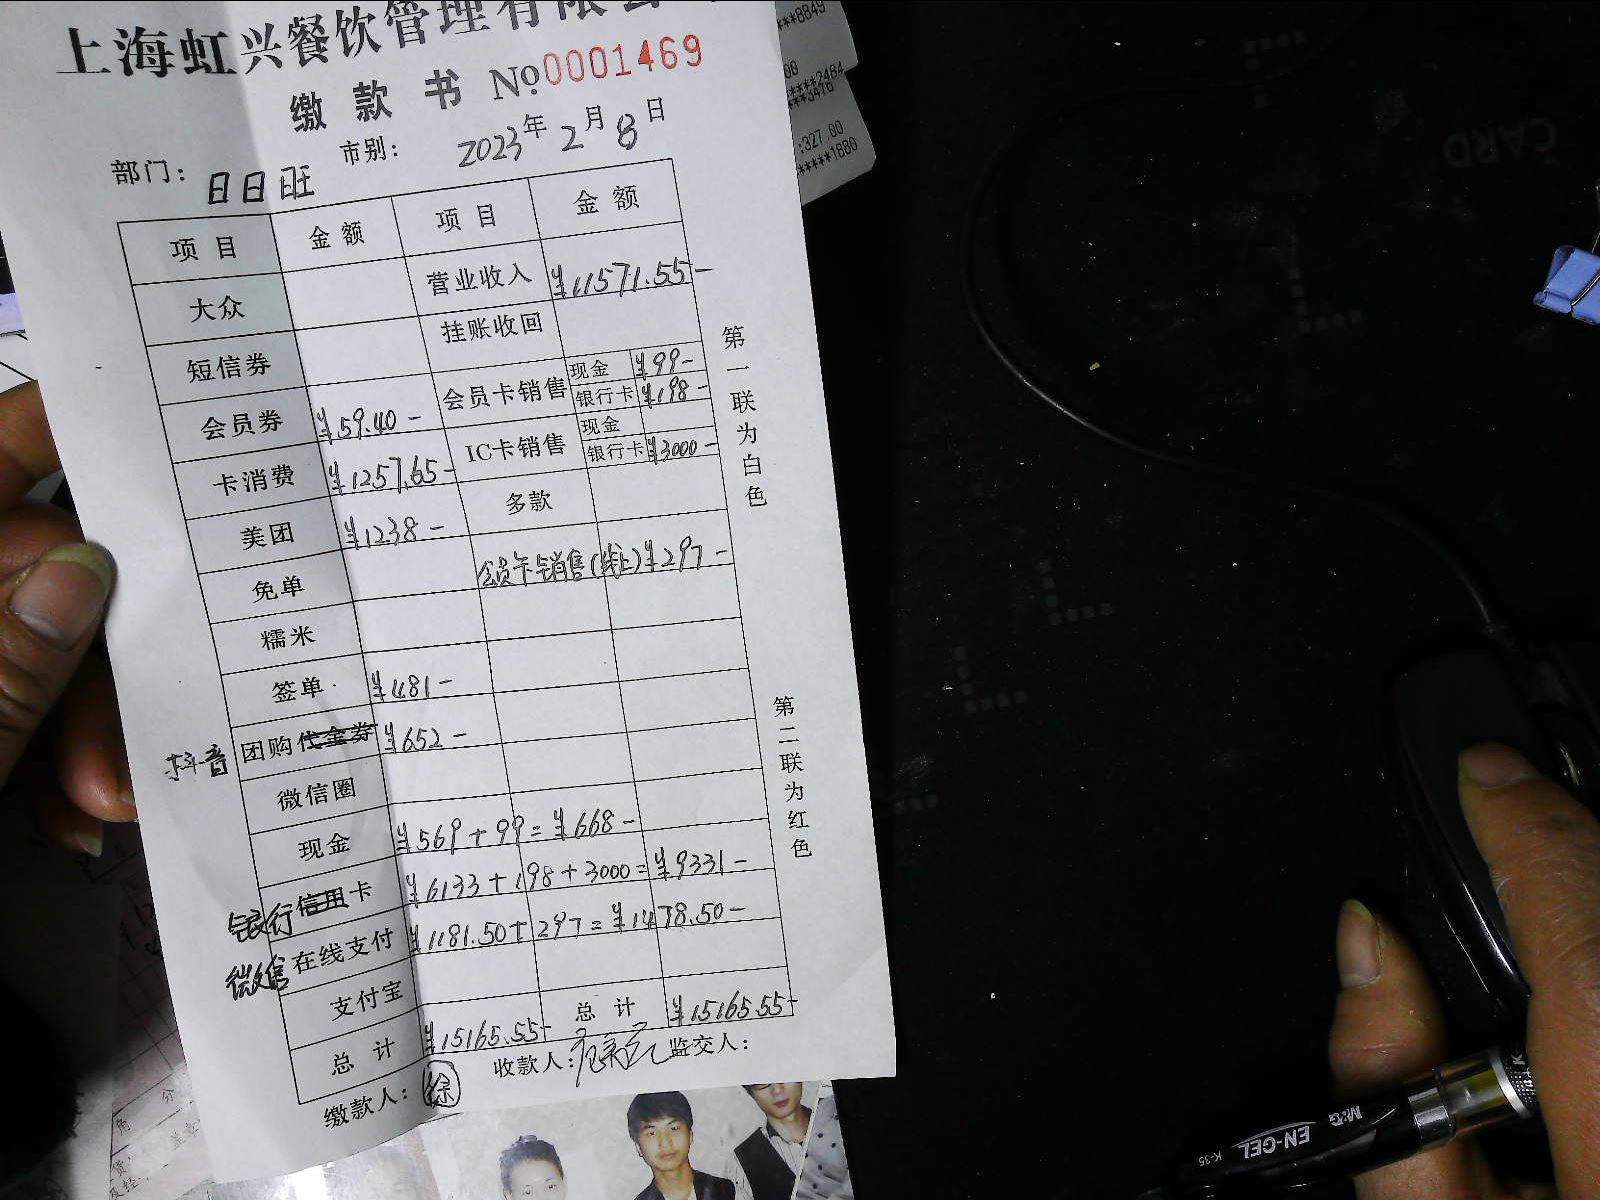 上海虹兴餐饮管理有限公
缴款书 No.0001469
部门：日日旺 市别： 2023年2月8日
项目 金额 项目 金额
大众 营业收入 ¥11571.55-
短信券 挂账收回
会员券 ¥59.40- 会员卡销售 现金 ¥99-
银行卡 ¥198-
卡消费 ¥1257.65- IC卡销售 现金
银行卡 ¥3000-
美团 ¥1238- 多款
免单 会员卡销售(线上) ¥297-
糯米
签单 ¥481-
抖音 团购代金券 ¥652-
微信圈
现金 ¥569+99=¥668-
银行信用卡 ¥6133+198+3000=¥9331-
微信在线支付 ¥1181.50+297=¥1478.50-
支付宝
总计 ¥15165.55- 总计 ¥15165.55-
缴款人：徐 收款人： 监交人：
第一联为白色
第二联为红色
***8849
***2484
***3476
:327.00
*****1880
CARD
M&G
EN-GEL
K-35